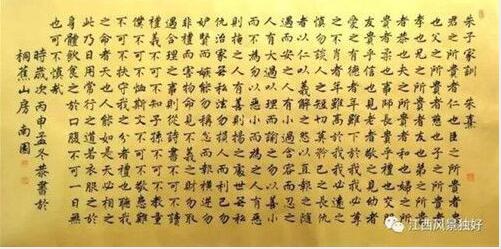 朱子家訓 朱熹
君之所貴者仁也臣之所貴者忠
也父之所貴者慈也子之所貴者
孝也兄之所貴者友也弟之所
貴者恭也夫之所貴者和也婦之所
貴者柔也事師長貴乎禮也交朋
友貴乎信也見老者敬之見幼者
愛之有德者年雖下於我我必尊
之不肖者年雖高於我我必遠之
慎勿談人之短切莫矜己之長仇
者以義解之怨者以直報之隨所
遇而安之人有小過含容而忍之
人有大過以理而諭之勿以善小
而不為勿以惡小而為之人有惡
則掩之人有善則揚之處世無私
仇治家無私法勿損人而利己勿
妒賢而嫉能勿稱忿而報橫逆勿
非禮而害物命見不義之財勿取
遇合理之事則從詩書不可不讀
禮義不可不知子孫不可不教童
僕不可不恤斯文不可不敬患難
不可不扶守我之分者禮也聽我
之命者天也人能如是天必相之
此乃日用常行之道若衣服之於
身體飲食之於口腹不可一日無
也可不慎哉
時歲次丙申孟冬恭書於
桐蕉山房 南園
江西风景独好